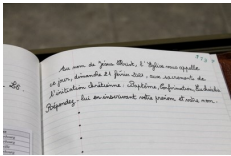 Au nom de Jésus Christ, l'Eglise nous appelle
ce jour, dimanche 21 février, aux sacrements de
l'initiation chrétienne : Baptême, Confirmation, Eucharistie
Répondez-lui en inscrivant votre prénom et votre nom.